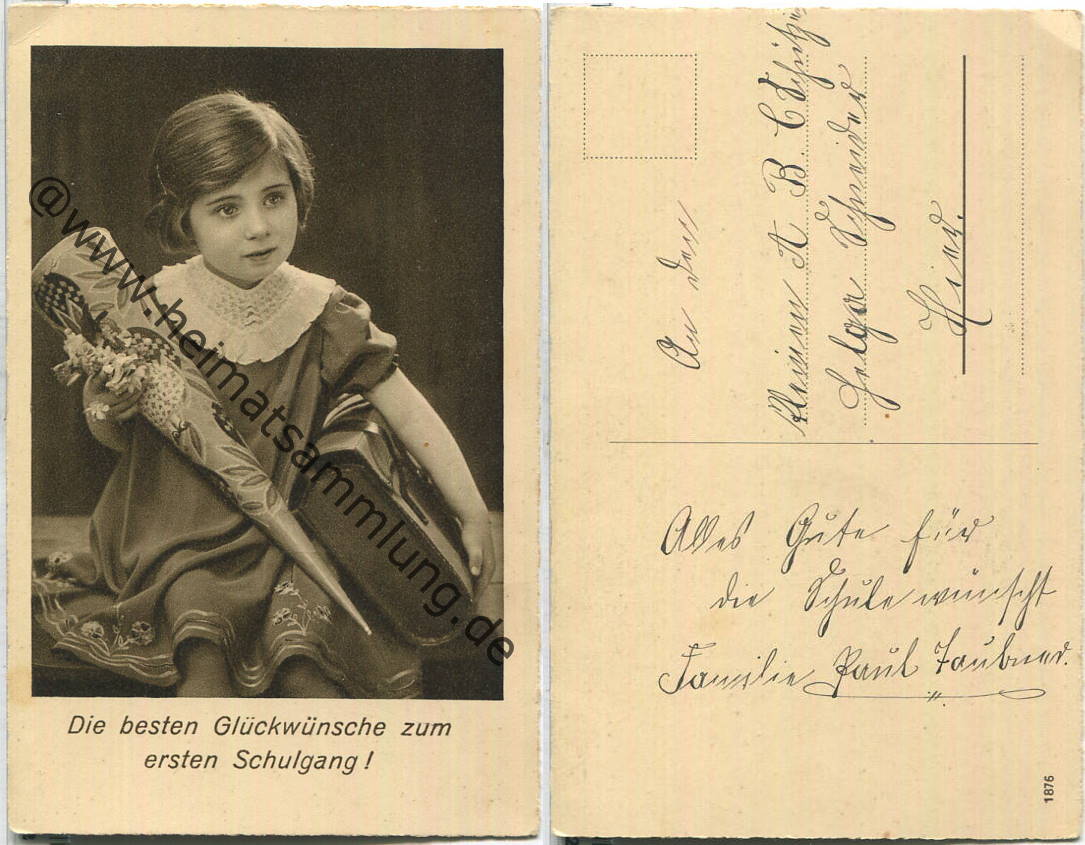 @www.heimatsammlung.de
Die besten Glückwünsche zum
ersten Schulgang!
An den
kleinen A B C Schütz
Helga Schneider
Hier.
Alles Gute für
die Schule wünscht
Familie Paul Taubner.
1876